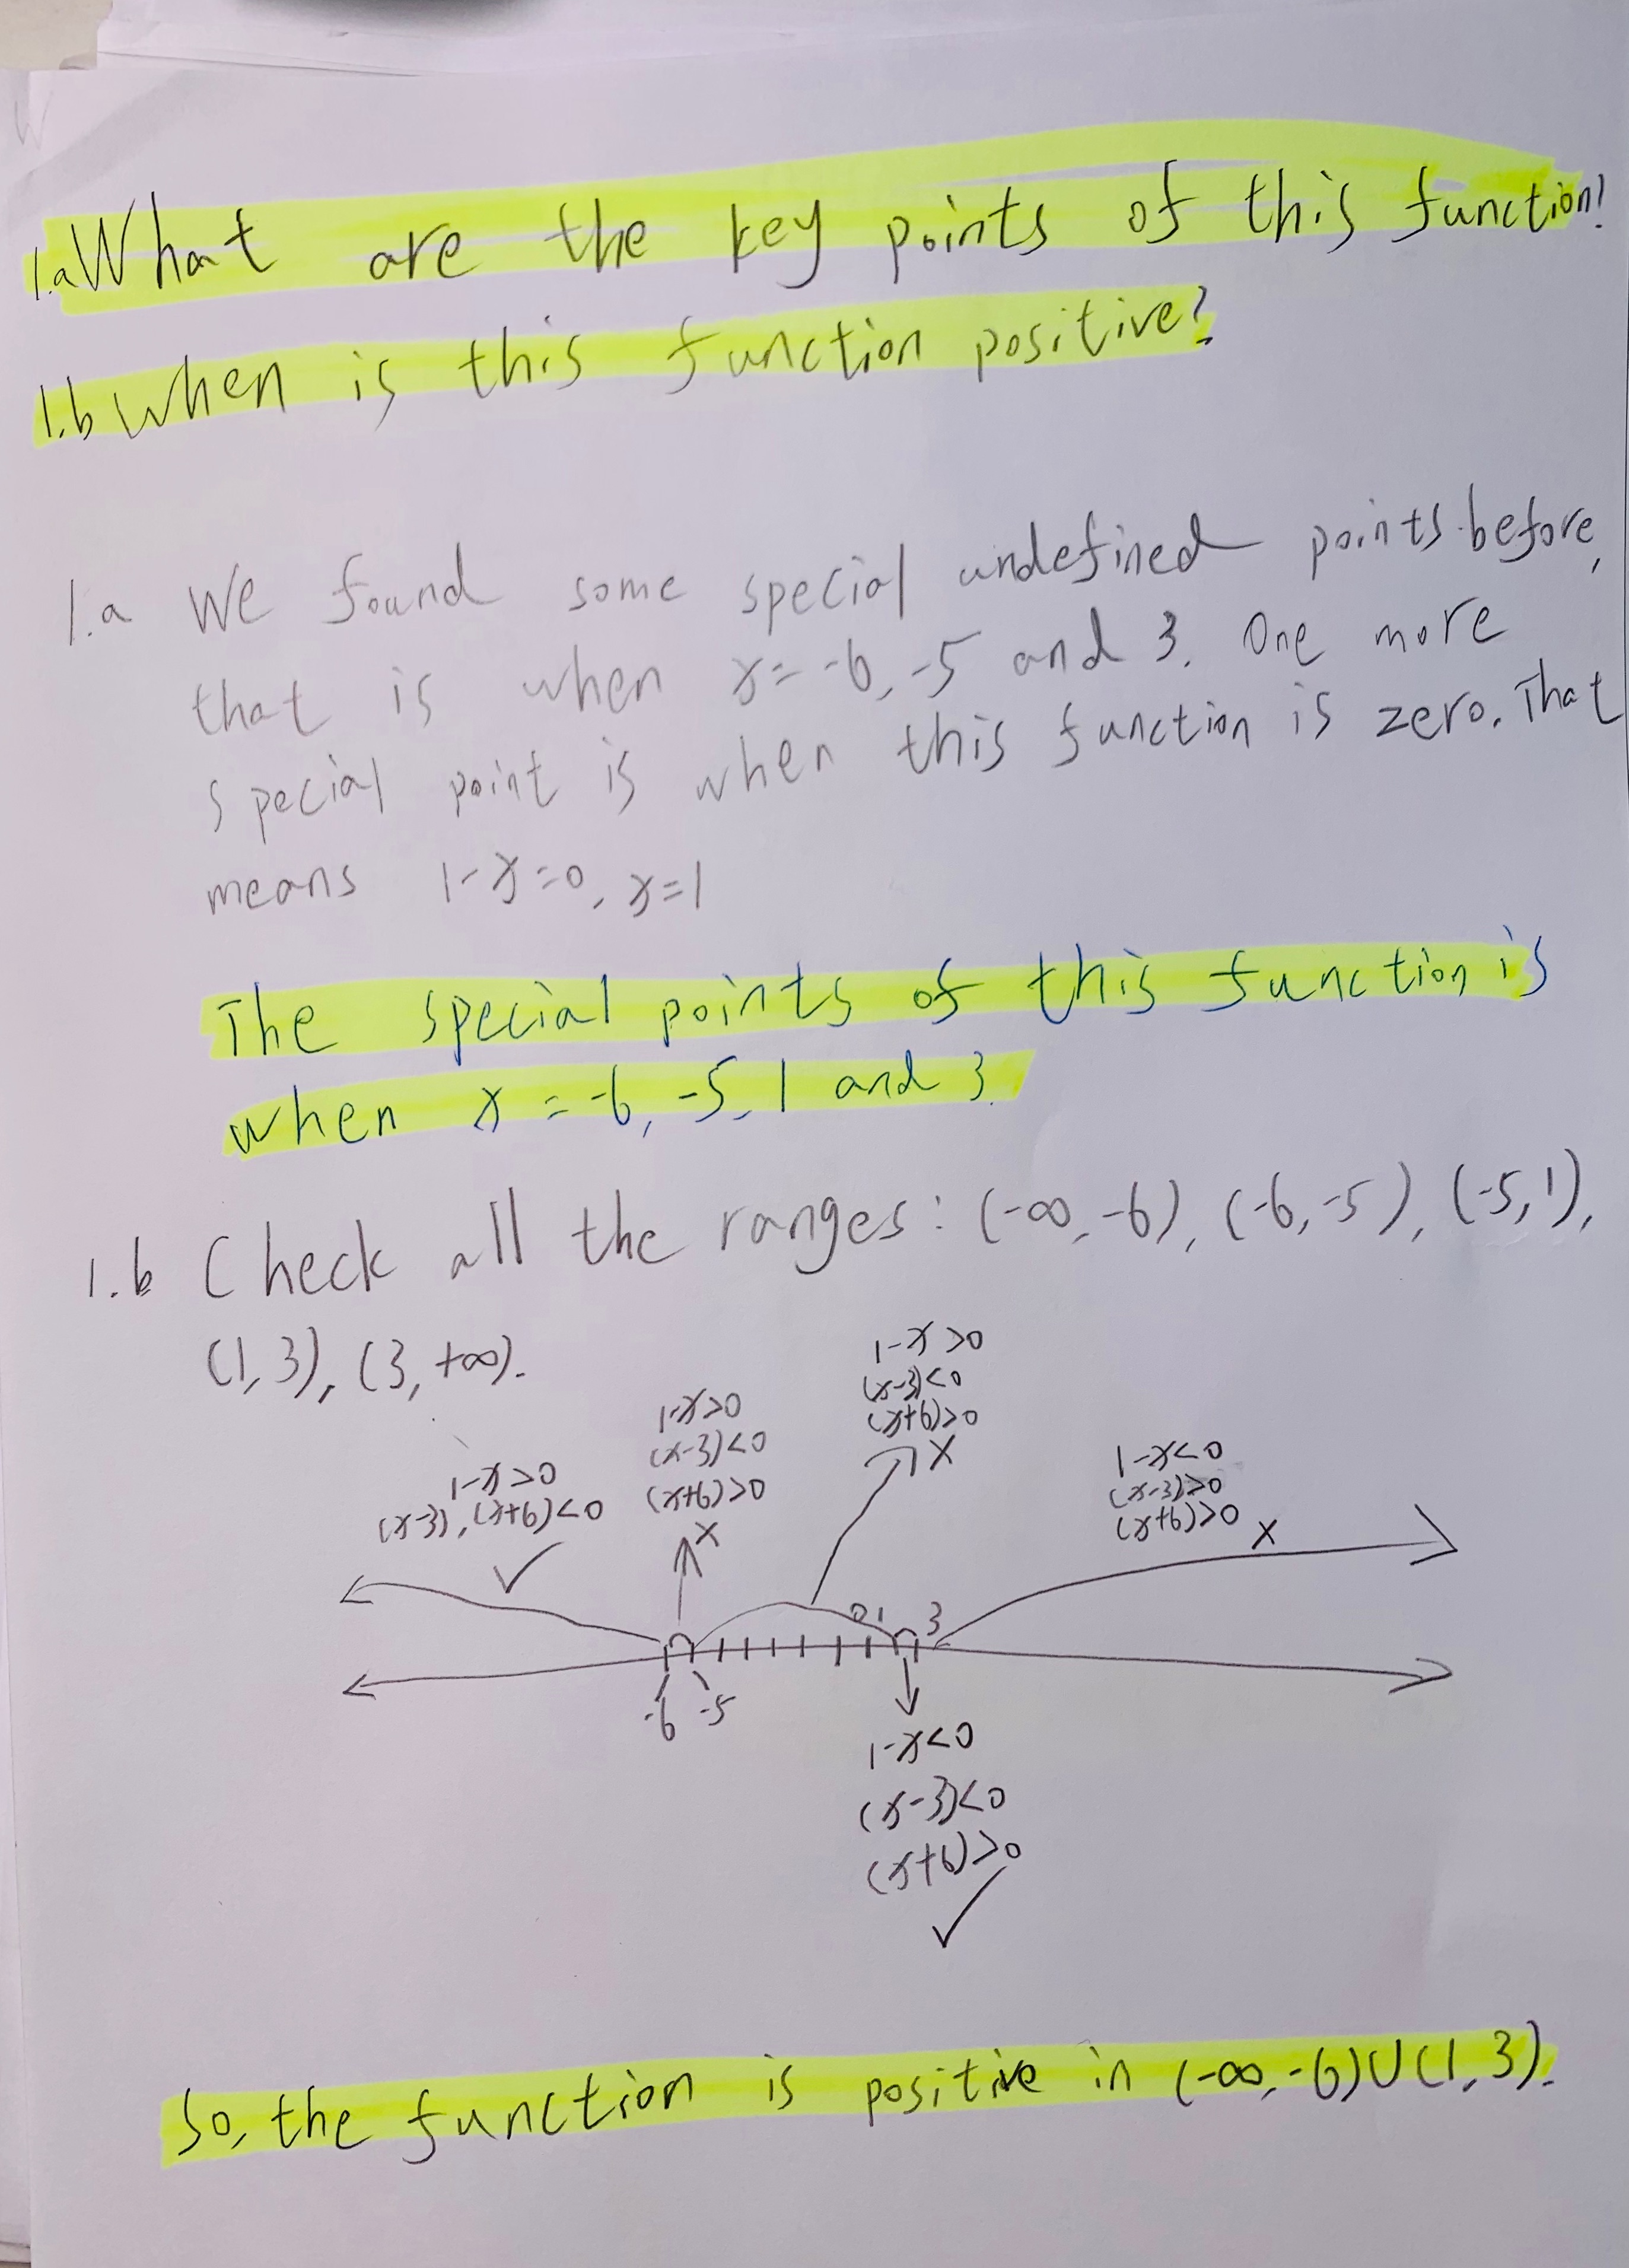 1.a What are the key points of this function?
1.b When is this function positive?
1.a We found some special undefined points before,
that is when x=-6,-5 and 3. One more
special point is when this function is zero. That
means 1-x=0, x=1
The special points of this function is
when x=-6,-5,1 and 3.
1.b Check all the ranges: (-∞,-6), (-6,-5), (-5,1),
(1,3), (3,+∞).
1-x>0
(x-3),(x+6)<0
✓
1-x>0
(x-3)<0
(x+6)>0
X
1-x>0
(x-3)<0
(x+6)>0
X
1-x<0
(x-3)>0
(x+6)>0 X
0 1 3
-6 -5
1-x<0
(x-3)<0
(x+6)>0
✓
So, the function is positive in (-∞,-6)∪(1,3).